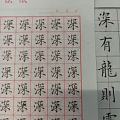 深有龍則
深深深深深深
深深深深深深
深深深深深深
深深深深深深
深深深深深深